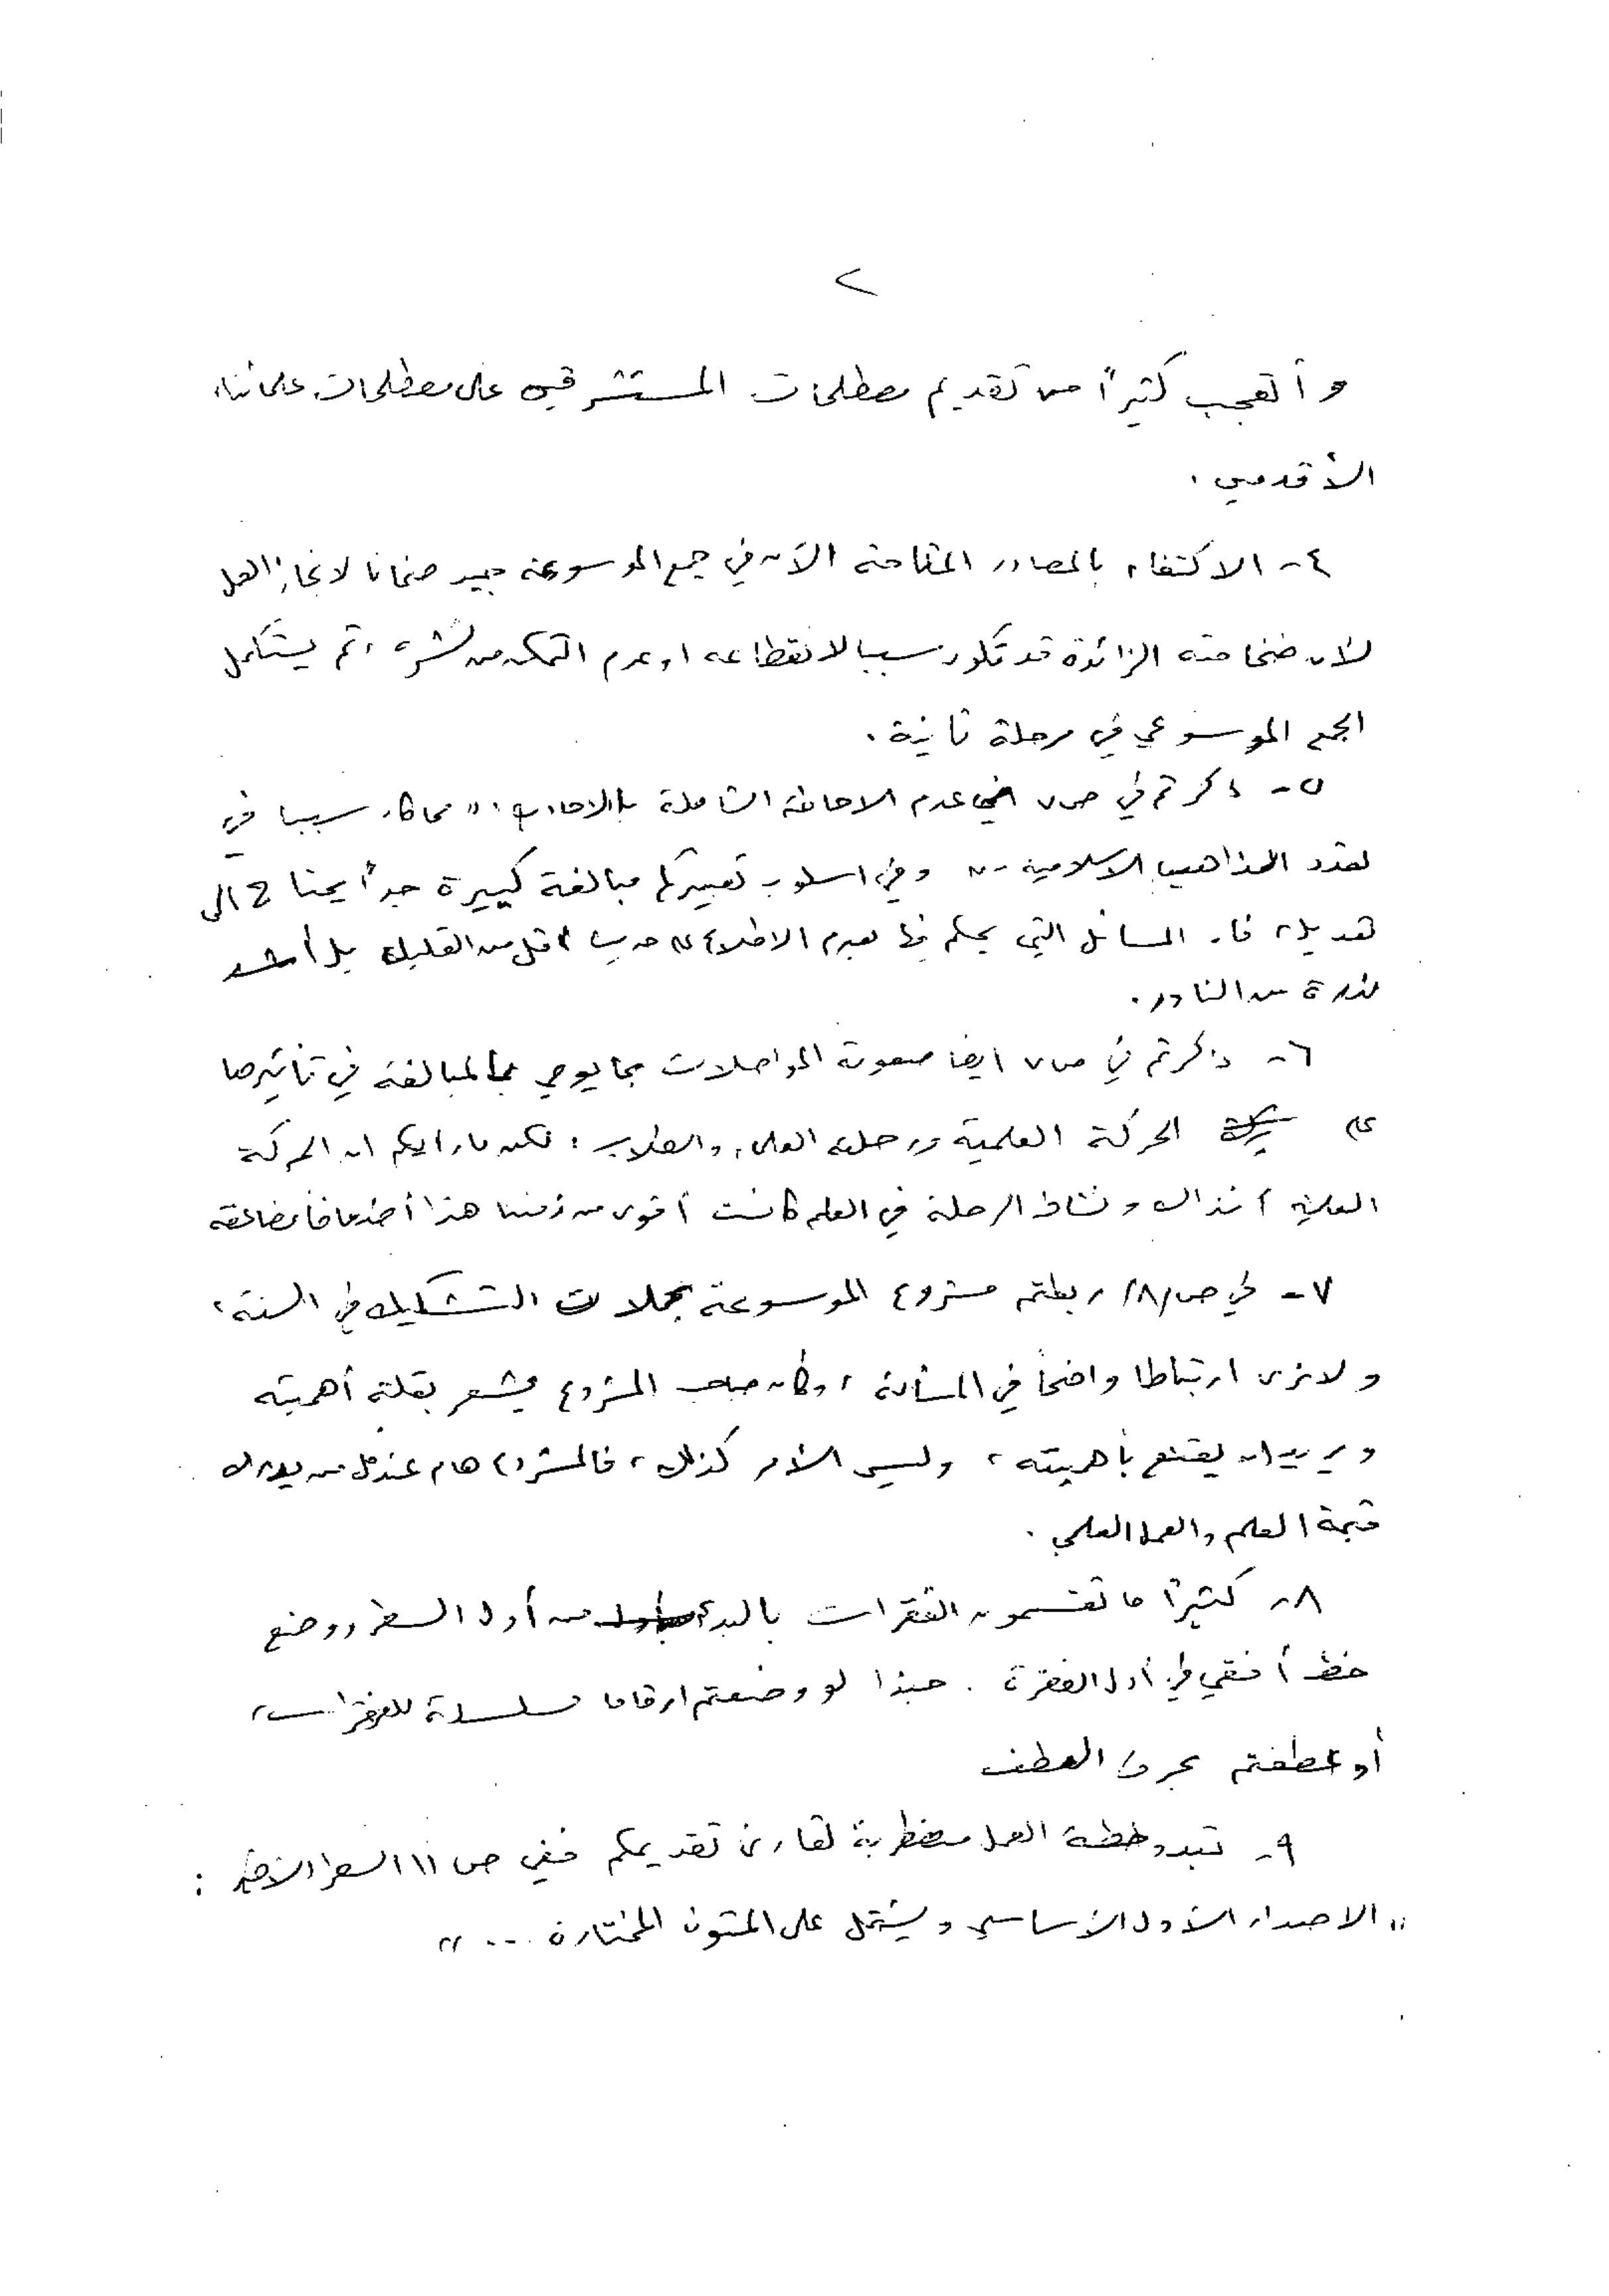 ٢
وأتعجب كثيراً من تقديم مصطلحات المستشرقين على مصطلحات علمائنا
الأقدمين .
٤- الاكتفاء بالمصادر المتاحة الآن في جمع الموسوعة جيد ضمانا لانجاز العمل
لأن ضخامته الزائدة قد تكون سببا لانقطاعه او عدم التمكن من نشره ، ثم يستكمل
الجمع الموسوعي في مرحلة ثانية .
٥- ذكرتم في ص٧ عدم الاحاطة الشاملة بالاحاديث : " مما كان سببا في
تعدد المذاهب الاسلامية -- " وفي اسلوب تعبيركم مبالغة كبيرة جداً يحتاج الى
تعديل ، فان المسائل التي يحكم فيها بعدم الاطلاع على حديث أقل من القليل بل أشد
ندرة من النادر .
٦- ذكرتم في ص٧ ايضا صعوبة المواصلات بما يوحي بالمبالغة في تأثيرها
على الحركة العلمية ورحلة العلماء والطلاب ؛ لكن ما رأيكم ان الحركة
العلمية آنذاك ونشاط الرحلة في العلم كانت أقوى من زمننا هذا أضعافا مضاعفة
٧- في ص/٨/ ربطتم مشروع الموسوعة بحملات التشكيك في السنة ،
ولا نرى ارتباطا واضحاً في المسألة ، وكأن صاحب المشروع يشعر بقلة أهميته
ويريد ان يقنع بأهميته ، وليس الأمر كذلك ، فالمشروع هام عند كل من يدرك
قيمة العلم والعمل العلمي .
٨- كثيراً ما تقسمون الفقرات بالبدء من أول السطر ووضع
خط أفقي في أول الفقرة . حبذا لو وضعتم ارقاما مسلسلة للفقرات ،
أو عطفتم بحرف العطف
٩- تبدو خطة العمل مضطربة لقارئ تقديمكم ففي ص ١١ السطر الأخير :
" الاصدار الأول الأساسي ويشتمل على المتون المختارة ... "